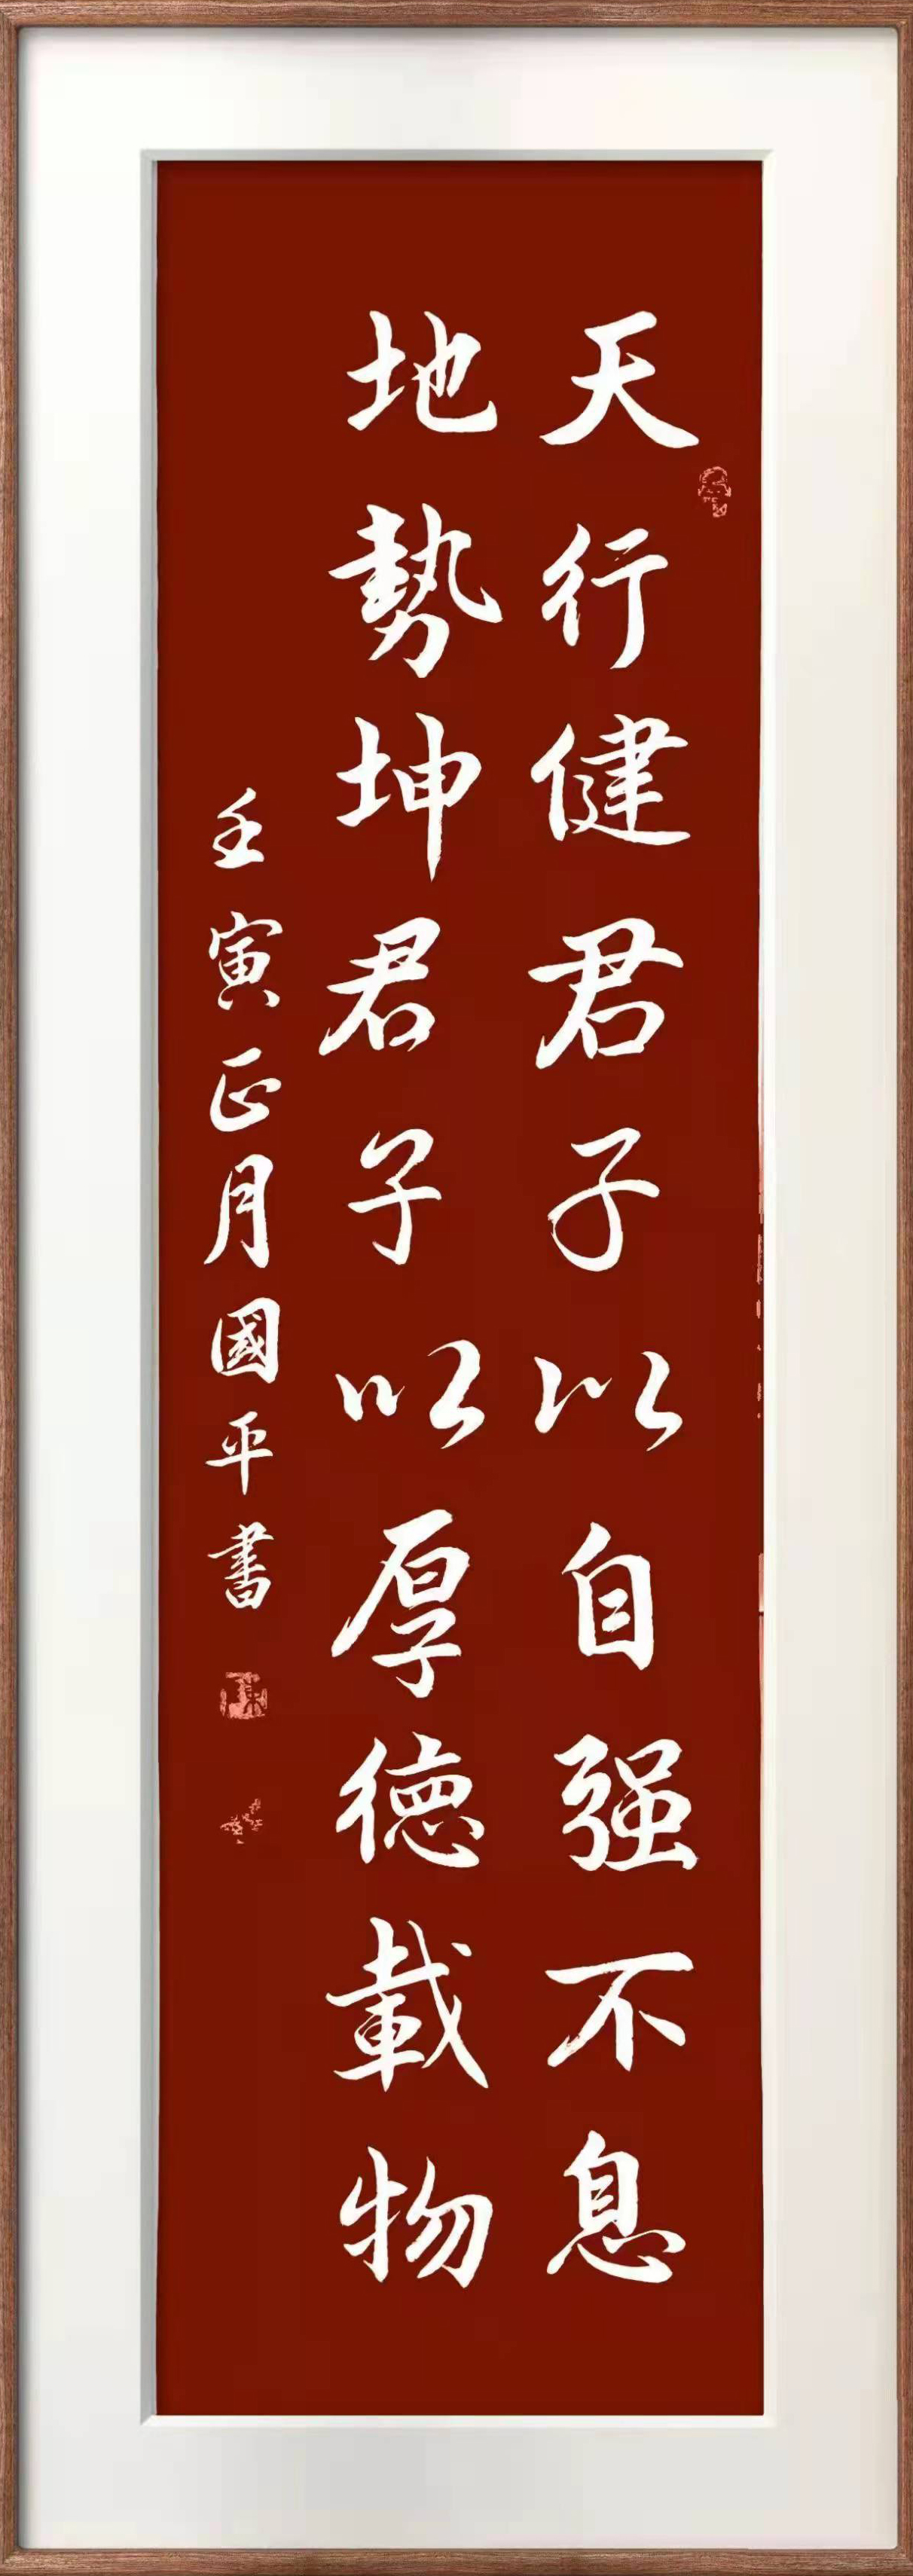 天行健君子以自强不息
地勢坤君子以厚德載物
壬寅正月國平書